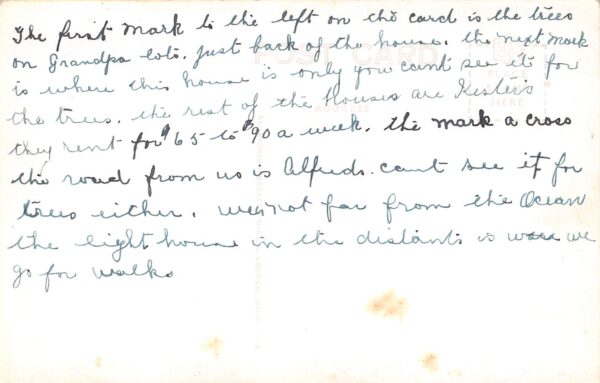 The first mark to the left on this card is the trees
on Grandpa lots. just back of the house. the next mark
is where this house is only you cant see it for
the trees. the rest of the Houses are Kester's
they rent for $65 to $90 a week. the mark a cross
the road from us is Alfreds. cant see it for
trees either. not far from the Ocean
the light house in the distants is where we
go for walks
POST CARD
PLACE
HERE